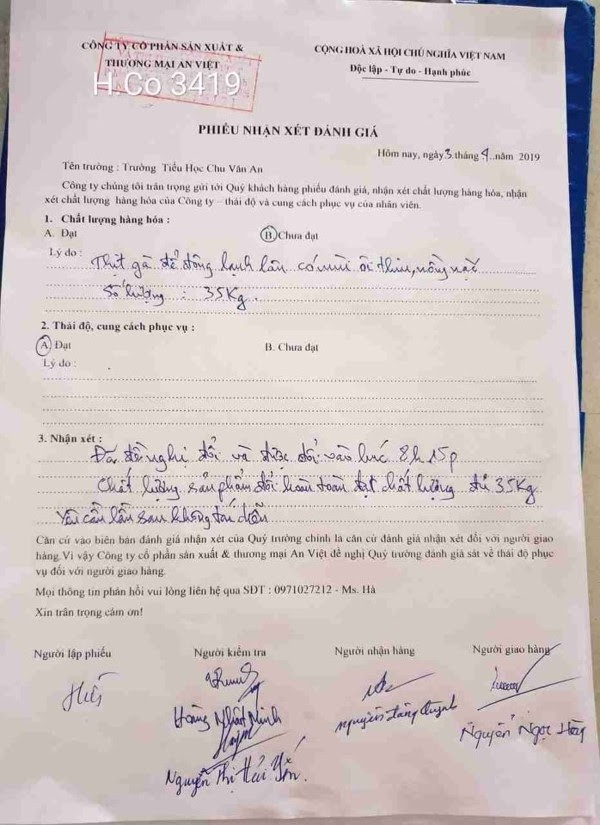 CÔNG TY CỔ PHẦN SẢN XUẤT &
THƯƠNG MẠI AN VIỆT
H.Co 3419
CỘNG HOÀ XÃ HỘI CHỦ NGHĨA VIỆT NAM
Độc lập - Tự do - Hạnh phúc
PHIẾU NHẬN XÉT ĐÁNH GIÁ
Hôm nay, ngày 3 tháng 4 năm 2019
Tên trường : Trường Tiểu Học Chu Văn An
Công ty chúng tôi trân trọng gửi tới Quý khách hàng phiếu đánh giá, nhận xét chất lượng hàng hóa, nhận
xét chất lượng hàng hóa của Công ty – thái độ và cung cách phục vụ của nhân viên.
1. Chất lượng hàng hóa :
A. Đạt B. Chưa đạt
Lý do : Thịt gà để đông lạnh lâu có mùi ôi thiu, nồng nặc
Số lượng : 35Kg.
2. Thái độ, cung cách phục vụ :
A. Đạt B. Chưa đạt
Lý do :
3. Nhận xét :
Đã đề nghị đổi và được đổi vào lúc 8h15p
Chất lượng sản phẩm đổi hoàn toàn đạt chất lượng đủ 35Kg
Yêu cầu lần sau không tái diễn
Căn cứ vào biên bản đánh giá nhận xét của Quý trường chính là căn cứ đánh giá nhận xét đối với người giao
hàng.Vì vậy Công ty cổ phần sản xuất & thương mại An Việt đề nghị Quý trường đánh giá sát về thái độ phục
vụ đối với người giao hàng.
Mọi thông tin phản hồi vui lòng liên hệ qua SĐT : 0971027212 - Ms. Hà
Xin trân trọng cảm ơn!
Người lập phiếu Người kiểm tra Người nhận hàng Người giao hàng
Hoàng Nhật Minh
Nguyễn Thị Hải Yến.
Nguyễn Ngọc